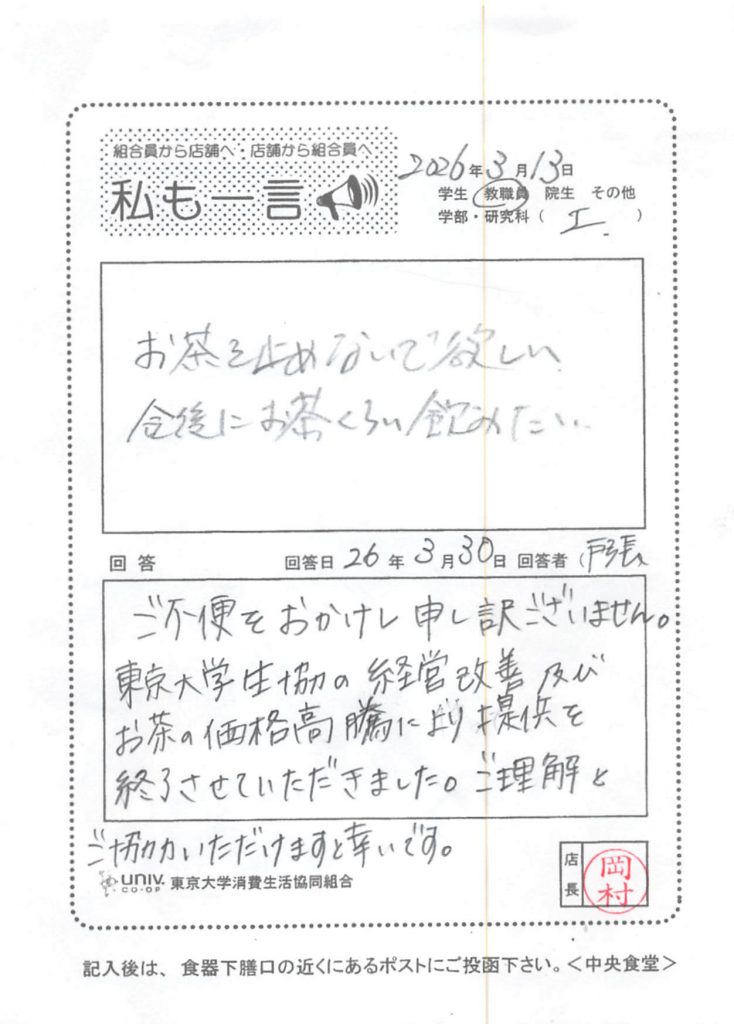 組合員から店舗へ・店舗から組合員へ
私も一言
2026年3月13日
学生 教職員 院生 その他
学部・研究科( 工. )
お茶を止めないで欲しい
食後にお茶くらい飲みたい..
回答 回答日 26年 3月30日 回答者(戸張
ご不便をおかけし申し訳ございません。
東京大学生協の経営改善及び
お茶の価格高騰により提供を
終了させていただきました。ご理解と
ご協力いただけますと幸いです。
UNIV. CO-OP 東京大学消費生活協同組合
店長 岡村
記入後は、食器下膳口の近くにあるポストにご投函下さい。<中央食堂>